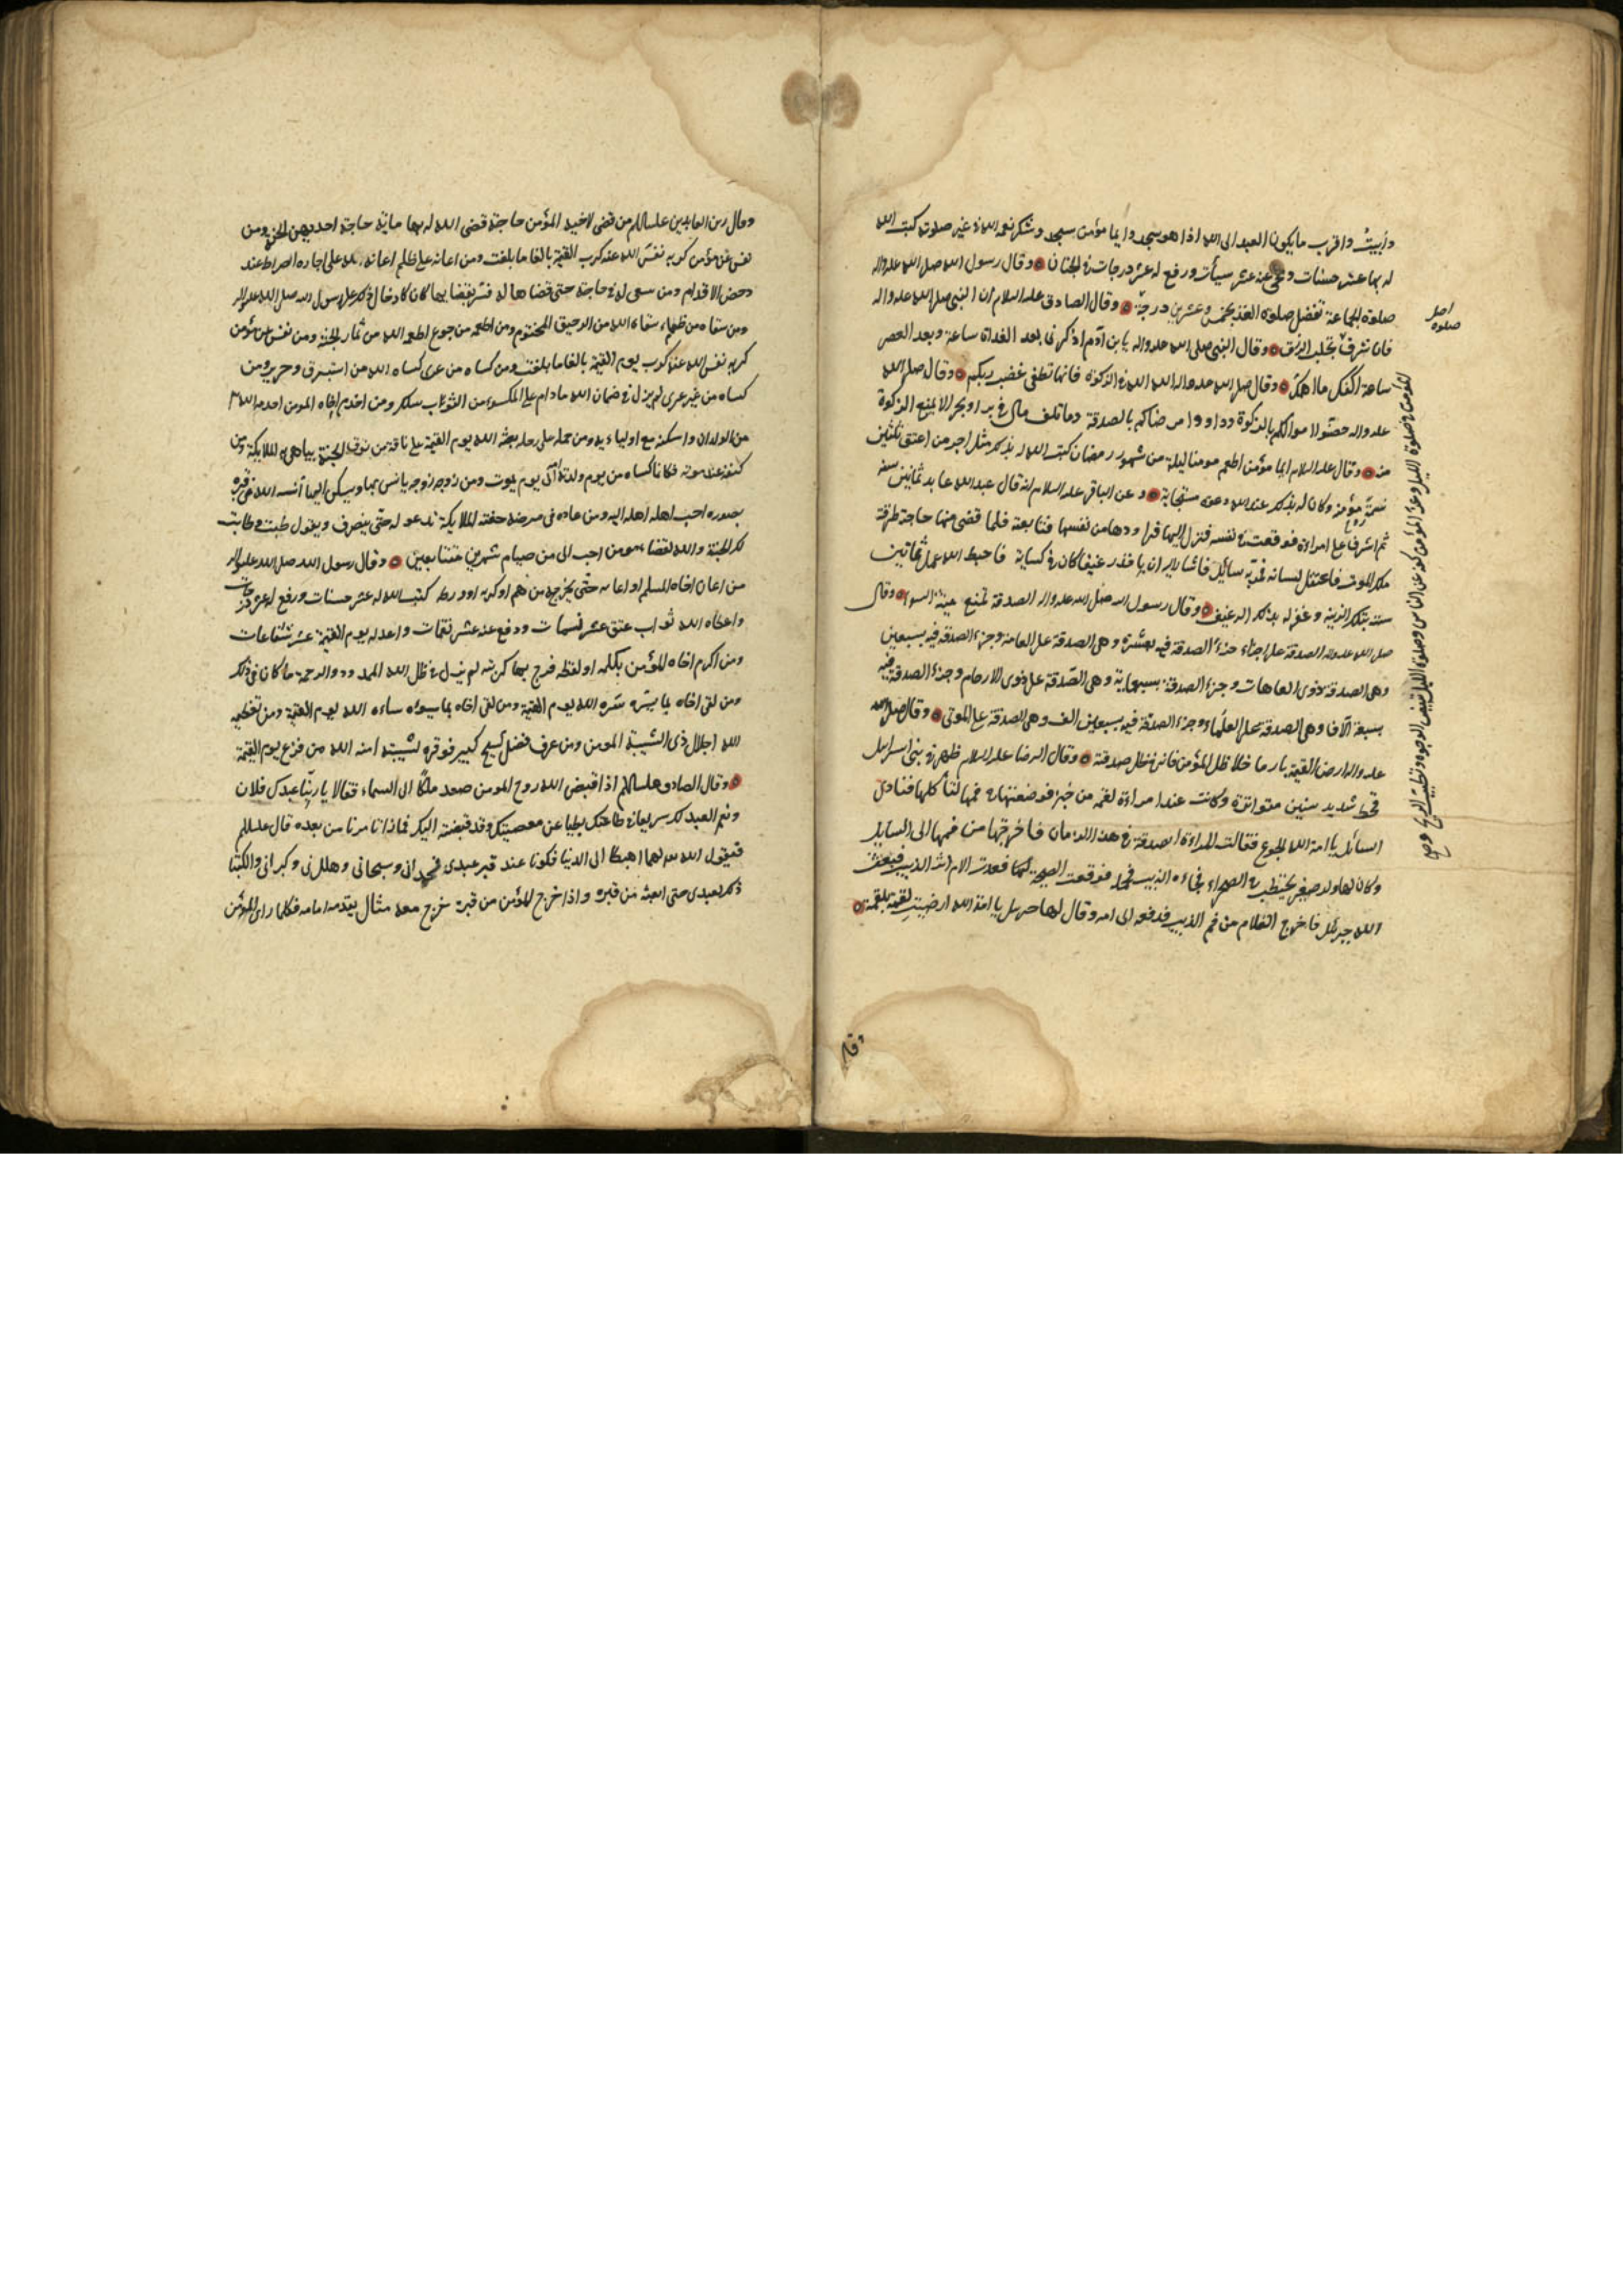 وأبيت واقرب ما يكون العبد الى الله اذا هو سجد وايما مؤمن سجد وشكر نعمه الله في غير صلوة كتب الله
له بها عشر حسنات ومحى عنه عشر سيأت ورفع له عشر درجات في الجنان وقال رسول الله صلى الله عليه واله
صلوة الجماعة تفضل صلوة الفذ بخمس وعشرين درجة وقال الصادق عليه السلام ان النبي صلى الله عليه واله
قال يا بن آدم اذكرنى بعد الغداة ساعة وبعد العصر
ساعة اكفك ما اهمك وقال صلى الله عليه واله الله الله في الزكوة فانها تطفى غضب ربكم وقال صلى الله
عليه واله حصنوا اموالكم بالزكوة وداووا مرضاكم بالصدقة وما تلف مال في بر او بحر الا بمنع الزكوة
منه وقال عليه السلام ايما مؤمن اطعم مومنا ليلة من شهر رمضان كتب الله له بذلك مثل اجر من اعتق ثلثين
نسمة مؤمنة وكان له بذلك عند الله دعوة مستجابة وعن الباقر عليه السلام انه قال عبد الله عابد ثمانين سنه
ثم اشرف على امراة فوقعت في نفسه فنزل اليها فراودها من نفسها فتابعته فلما قضى منها حاجته طرقه
ملك الموت فاعتقل لسانه فمر به سائل فاشار اليه ان يا خذ رغيفا كان في كسائه فاحبط الله عمل ثمانين
سنة بتلك الزينه وغفر له بذلك الرغيف وقال رسول الله صلى الله عليه واله الصدقة تمنع ميتة السوء وقال
صلى الله عليه واله الصدقة على اجزاء جزء الصدقة فيه بعشرة وهى الصدقة على العامة وجزء الصدقة فيه بسبعين
وهى الصدقة على ذوى العاهات وجزء الصدقة بسبعماية وهى الصدقة على ذوى الارحام وجزء الصدقة فيه
بسبعة آلاف وهى الصدقة على العلماء وجزء الصدقة فيه بسبعين الف وهى الصدقة على الموتى وقال صلى الله
عليه واله ارض القيمة نار ما خلا ظل المؤمن فان ظل صدقة وقال الرضا عليه السلام ظهر في بنى اسرايل
قحط شديد سنين متواترة وكانت عند امراءة لقمة من خبز فوضعتها في فمها لتاكلها فنادى
السائل يا امة الله الجوع فقالت المراءة الصدقة في هذا الزمان فاخرجتها من فمها الى السايل
وكان لها ولد صغير يحتطب في الصحراء فجاءه الذيب فوقعت الصيحة فعدت الام اثر الذيب فبعث
الله جبرئل فاخرج الغلام من فم الذيب فدفعه الى امه وقال لها جبرئيل يا امة الله ارضيت لقمة بلقمة
اصل
صلوة
وقال
وقال زين العابدين عليه السلام من قضى لاخيه المؤمن حاجة قضى الله له بها مائة حاجة احديهن الجنة ومن
نفس عن مؤمن كربه نفس الله عنه كرب القيمة بالغا ما بلغت ومن اعانه على ظلم اعانه الله على اجازة الصراط عند
دحض الاقدام ومن سعى له في حاجة حتى قضاها له فسر بقضايها كان كادخال السرور على رسول الله صلى الله عليه واله
ومن سقاه من ظماء سقاه الله من الرحيق المختوم ومن اطعمه من جوع اطعمه الله من ثمار الجنة ومن نفس عن مؤمن
كربه نفس الله عنه كرب يوم القيمة بالغا ما بلغت ومن كساه من عرى كساه الله من استبرق وحرير ومن
كساه من غير عرى لم يزل في ضمان الله ما دام على المكسو من الثوب سلك ومن اخدم اخاه المومن اخدمه الله
من الولدان واسكنه مع اولياءيه ومن حمله على رحله بعثه الله يوم القيمة على ناقة من نوق الجنة يباهى به الملايكة ومن
كفنه عند موته فكانما كساه من يوم ولدته امه الى يوم يموت ومن زوجه زوجه يانس بها ويسكن اليها آنسه الله في قبره
بصوره احب اهله اليه ومن عاده في مرضه حفته الملايكة تدعو له حتى ينصرف ويقول طبت وطابت
لك الجنة والله لقضا حاجة المومن احب الى من صيام شهرين متتابعين وقال رسول الله صلى الله عليه واله
من اعان اخاه المسلم او اغاثه حتى يخرجه من هم او كربه او ورطه كتب الله له عشر حسنات ورفع له عشر درجات
واعطاه الله ثواب عتق عشر نسمات ودفع عنه عشر نقمات واعد له يوم القيمة عشر شفاعات
ومن اكرم اخاه المؤمن بكلمه او لفظه فرج بها كربته لم يزل في ظل الله الممدود والرحمة ما كان في ذلك
ومن لقى اخاه بما يسره سره الله يوم القيمة ومن لقى اخاه بما يسوءه ساءه الله يوم القيمة ومن تعظيم
الله اجلال ذى الشيبة المومن ومن عرف فضل شيخ كبير فوقره لشيبته امنه الله من فزع يوم القيمة
وقال الصادق عليه السلام اذا قبض الله روح المومن صعد ملكا الى السماء فقالا يا ربنا عبدك فلان
ونعم العبد لك سريعا في طاعتك بطيا عن معصيتك وقد قبضته اليك فماذا تامرنا من بعده قال عليه السلام
فيقول الله لهما اهبطا الى الدنيا فكونا عند قبر عبدى فمجدانى وسبحانى وهللانى وكبرانى واكتبا
ذلك لعبدى حتى ابعثه من قبره واذا خرج المؤمن من قبره خرج معه مثال يقدمه امامه فكلما راى المؤمن